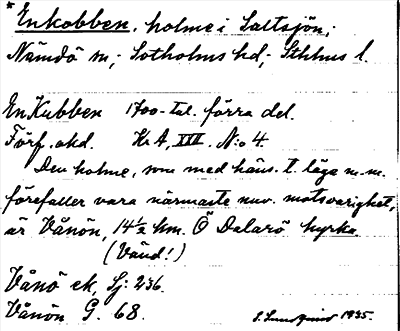 *Enkobben, holme i Saltsjön;
Nämdö sn; Sotholms hd; Sthlms l.
En Kubben 1700-tal. förra del.
Förf. okd. Kr A, XVII. No 4.
Den holme, som med häns. t. läge m.m.
förefaller vara närmaste nuv. motsvarighet,
är Vånön, 14½ km. Ö Dalarö kyrka.
(Vänd!)
Vånö ek, Sj: 236.
Vånön G. 68.
S. Lundqvist 1935.